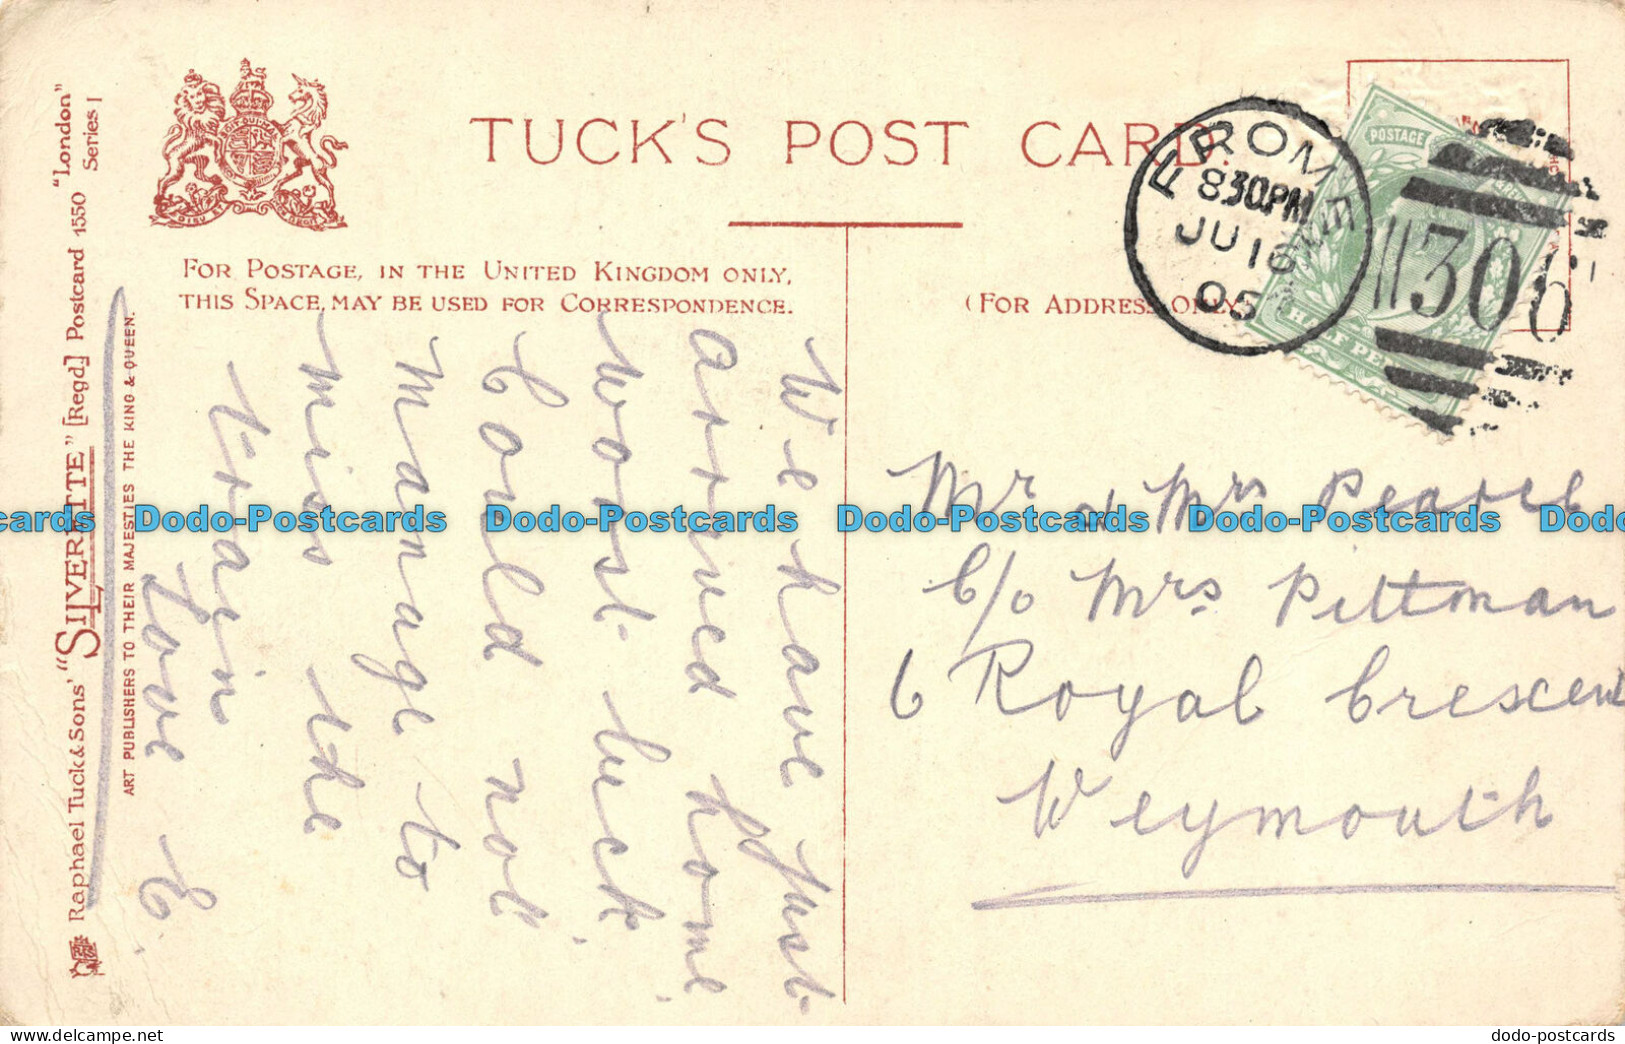 TUCK'S POST CARD.
FOR POSTAGE, IN THE UNITED KINGDOM ONLY,
THIS SPACE, MAY BE USED FOR CORRESPONDENCE.
(FOR ADDRESS ONLY
Raphael Tuck & Sons' "SILVERETTE" [Regd] Postcard 1550 "London" Series I
ART PUBLISHERS TO THEIR MAJESTIES THE KING & QUEEN.
We have just
arrived home
worst luck
Could not
manage to
miss the
train
Love E.
FROME
830PM
JU 16
05
306
POSTAGE
HALF PENNY
Mr & Mrs Pearce
C/o Mrs Pittman
6 Royal Crescent
Weymouth
Dodo-Postcards Dodo-Postcards Dodo-Postcards Dodo-Postcards
www.delcampe.net
dodo-postcards